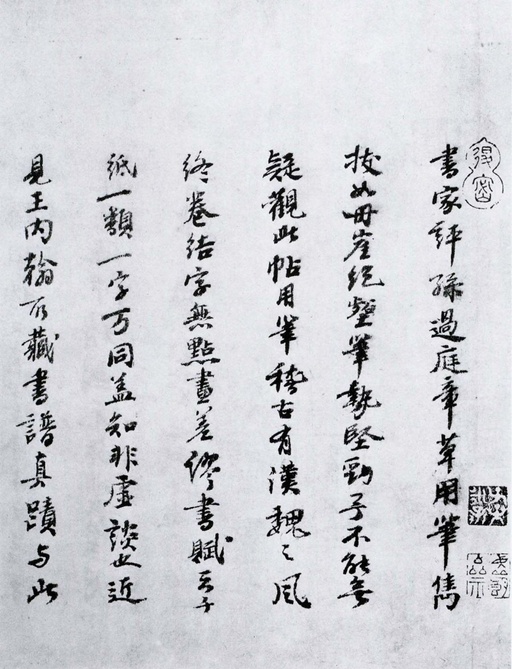 書家評孫過庭章草用筆雋
拔如丹崖絕壑筆勢堅勁予不能無
疑觀此帖用筆稽古有漢魏之風
終卷結字無點畫差繆書賦云千
紙一類一字万同盖知非虛談也近
見王内翰所藏書譜真蹟与此